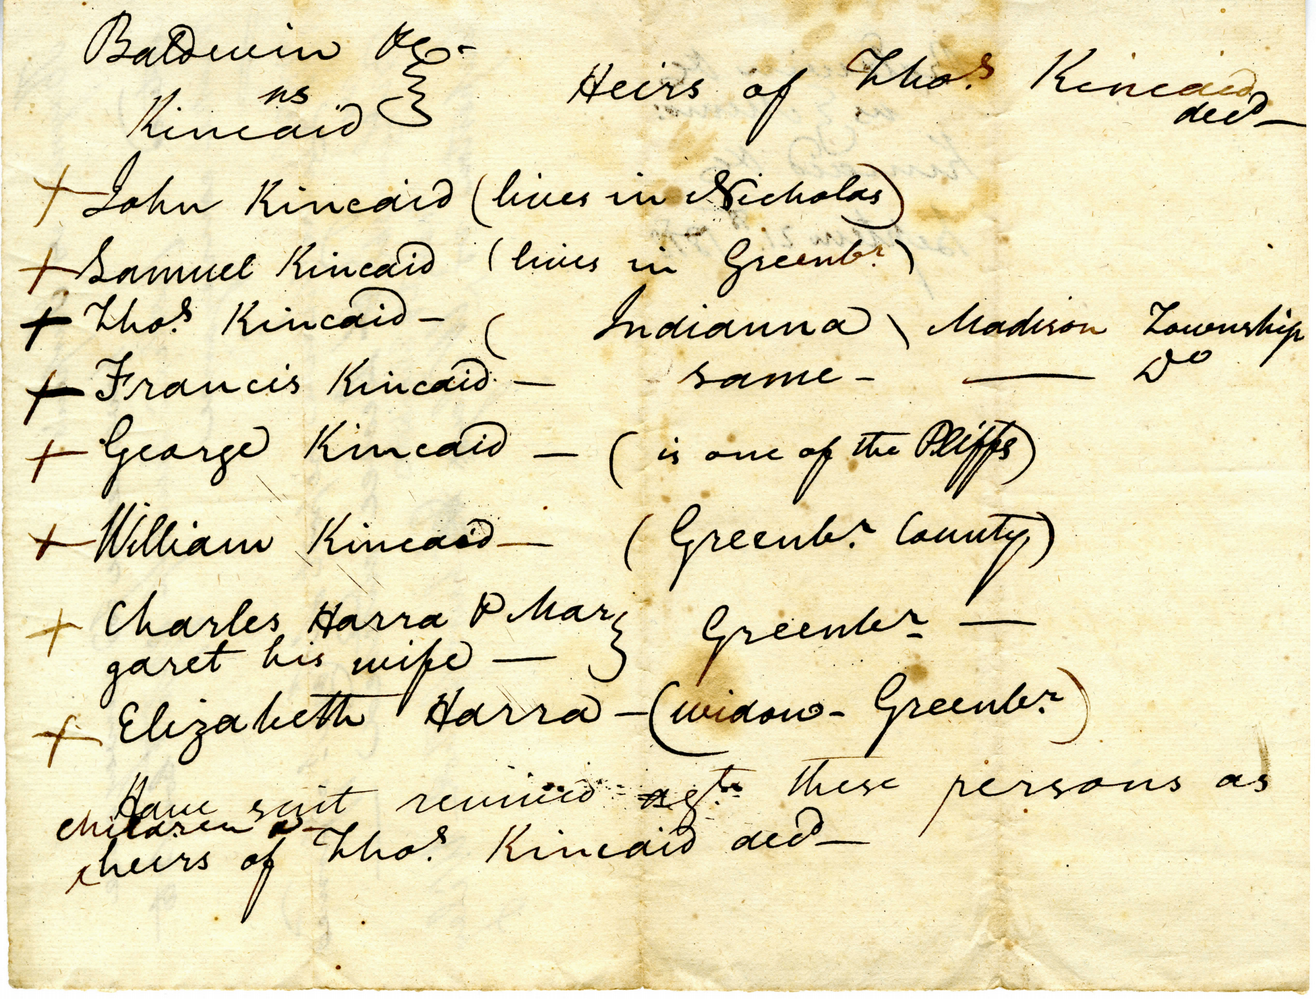 Baldwin &c.
ns
Kincaid
Heirs of Thos. Kincaid
decd—
+ John Kincaid (lives in Nicholas)
+ Samuel Kincaid (lives in Greenbr.)
+ Thos. Kincaid — ( Indianna ) Madison Township
+ Francis Kincaid — same — —— Do
+ George Kincaid — ( is one of the Pltffs)
+ William Kincaid — (Greenbr. County)
+ Charles Harra & Mar
garet his wife — } Greenbr —
+ Elizabeth Harra — (widow - Greenbr.)
Have suit revived agt. these persons as
children &
heirs of Thos. Kincaid decd—